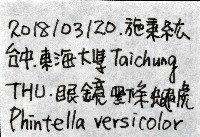 2018/03/20.施秉紘
台中.東海大學 Taichung
THU.眼鏡黑條蠅虎
Phintella versicolor